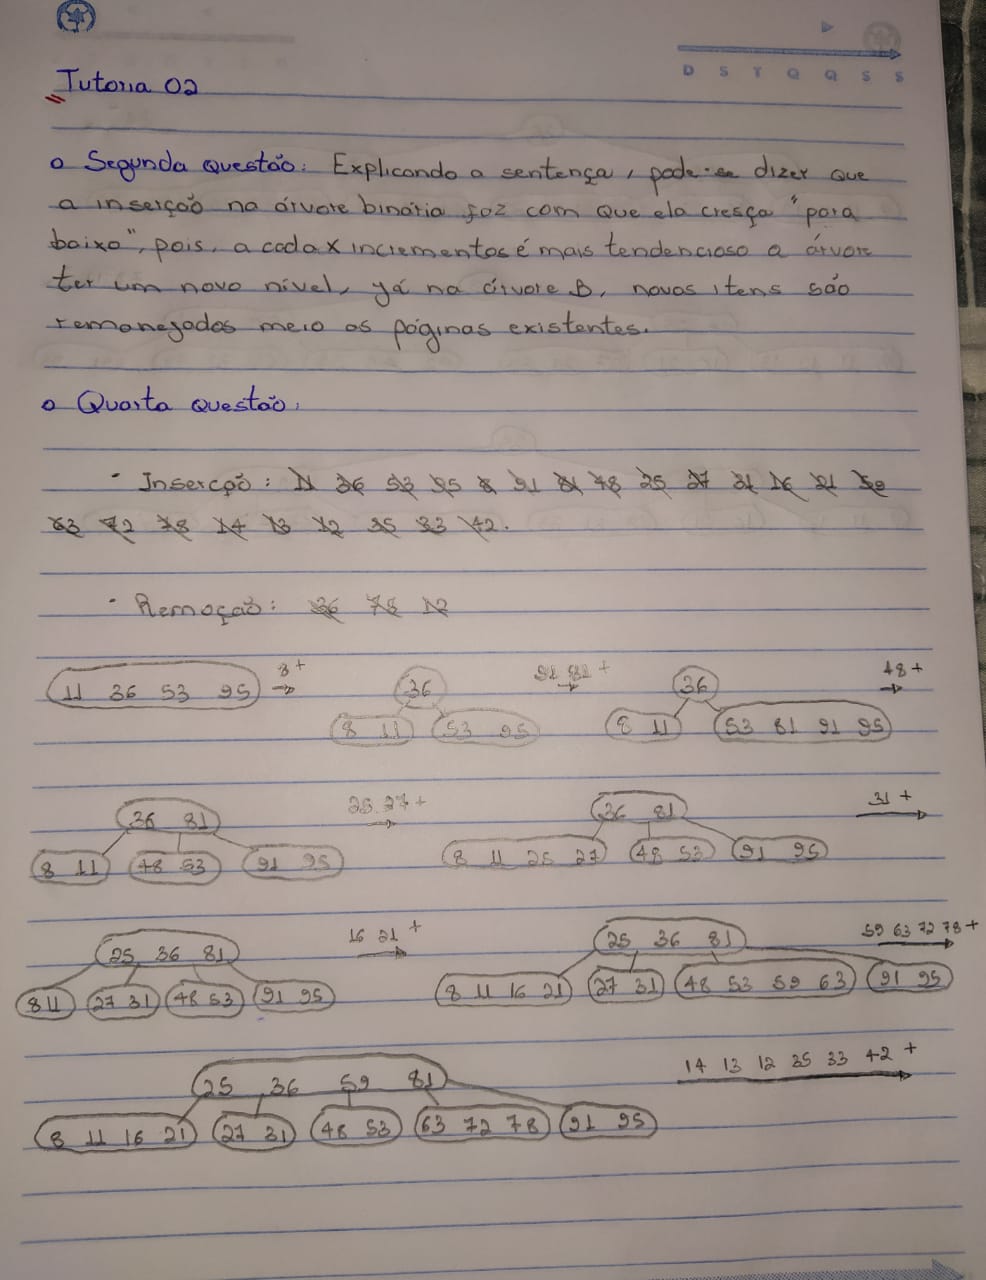 D S T Q Q S S
Tutoria 02
o Segunda questão: Explicando a sentença, pode-se dizer que
a inserção na árvore binária faz com que ela cresça "para
baixo", pois, a cada x incrementos é mais tendencioso a árvore
ter um novo nível, já na árvore B, novos itens são
remanejados meio as páginas existentes.
o Quarta questão:
- Inserção: 11 36 53 95 8 91 81 48 25 27 31 16 21 59
63 72 78 14 13 12 35 33 42.
- Remoção: 36 78 12
11 36 53 95 8+ 36 91 81 + 36 48+
8 11 53 95 8 11 53 81 91 95
36 81 25 27+ 36 81 31 +
8 11 48 53 91 95 8 11 25 27 48 53 91 95
25 36 81 16 21 + 25 36 81 59 63 72 78+
8 11 27 31 48 53 91 95 8 11 16 21 27 31 48 53 59 63 91 95
25 36 59 81 14 13 12 35 33 42 +
8 11 16 21 27 31 48 53 63 72 78 91 95